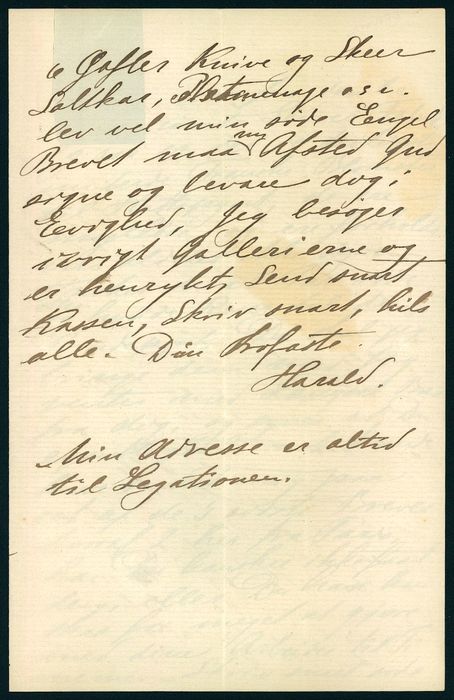 6 Gafler Knive og Skeer
Saltkar, o.s.v.
lev vel min søde Engel
Brevet maa nu Afsted Gud
signe og bevare dig i
Eevighed, Jeg besøger
ivrigt Gallerierne og
er henrykt, Send snart
Kassen, Skriv snart, hils
alle. Din trofaste
Harald.
Min Adresse er altid
til Legationen.